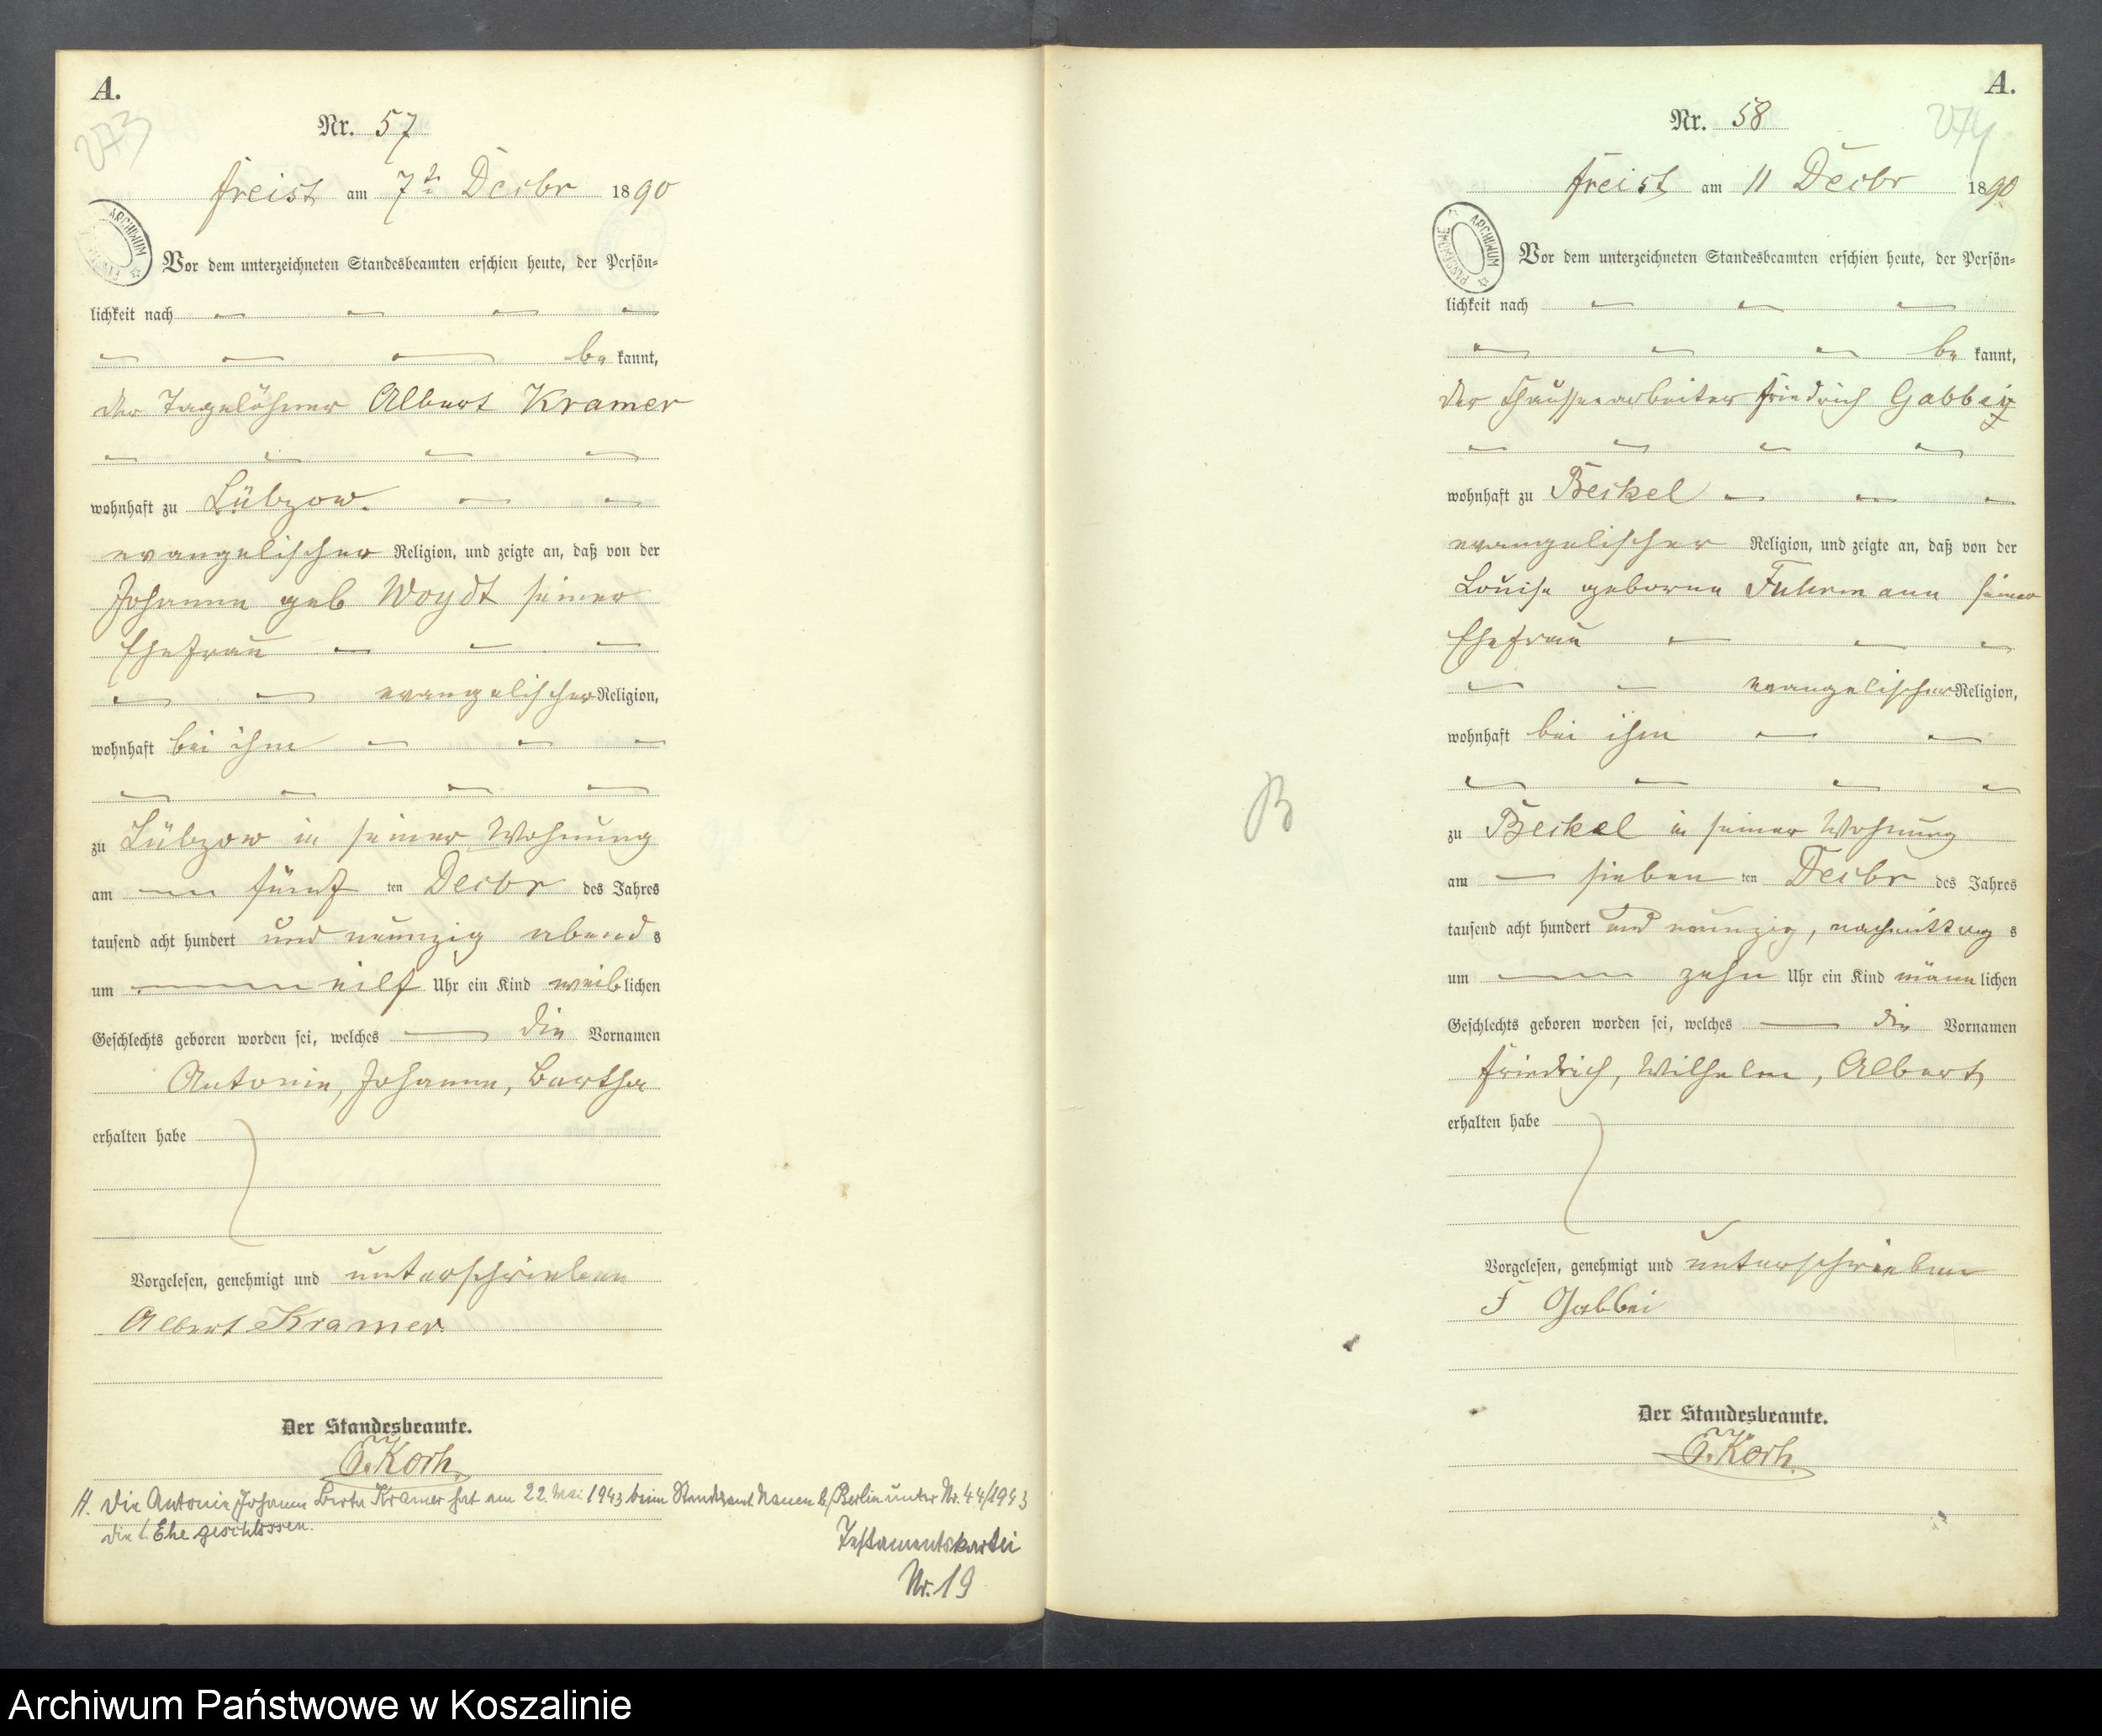 A.
273
Nr. 57
Freist am 7ten Decbr 1890
ARCHIWUM
Vor dem unterzeichneten Standesbeamten erschien heute, der Persön=
lichkeit nach
be kannt,
der Tagelöhner Albert Kramer
wohnhaft zu Lübzow.
evangelischer Religion, und zeigte an, daß von der
Johanne geb Woydt seiner
Ehefrau
evangelischer Religion,
wohnhaft bei ihm
zu Lübzow in seiner Wohnung
am fünf ten Decbr des Jahres
tausend acht hundert und neunzig abend s
um eilf Uhr ein Kind weib lichen
Geschlechts geboren worden sei, welches die Vornamen
Antonie, Johanne, Bertha
erhalten habe
Vorgelesen, genehmigt und unterschrieben
Albert Kramer.
Der Standesbeamte.
Koch.
Die Antonie Johanne Berta Kramer hat am 22. Mai 1943 beim Standesamt Nauen b/Berlin unter Nr. 44/1943
die 1. Ehe geschlossen.
Testamentskartei
Nr. 19
A.
274
Nr. 58
Freist am 11 Decbr 1890
ARCHIWUM PAŃSTWOWE
Vor dem unterzeichneten Standesbeamten erschien heute, der Persön=
lichkeit nach
be kannt,
der Chausseearbeiter Friedrich Gabbey
wohnhaft zu Beckel
evangelischer Religion, und zeigte an, daß von der
Louise geborne Fuhrmann seiner
Ehefrau
evangelischer Religion,
wohnhaft bei ihm
B
zu Beckel in seiner Wohnung
am sieben ten Decbr des Jahres
tausend acht hundert und neunzig, nachmittag s
um zehn Uhr ein Kind männ lichen
Geschlechts geboren worden sei, welches die Vornamen
Friedrich, Wilhelm, Albert
erhalten habe
Vorgelesen, genehmigt und unterschrieben
F Gabbei
Der Standesbeamte.
Koch.
Archiwum Państwowe w Koszalinie